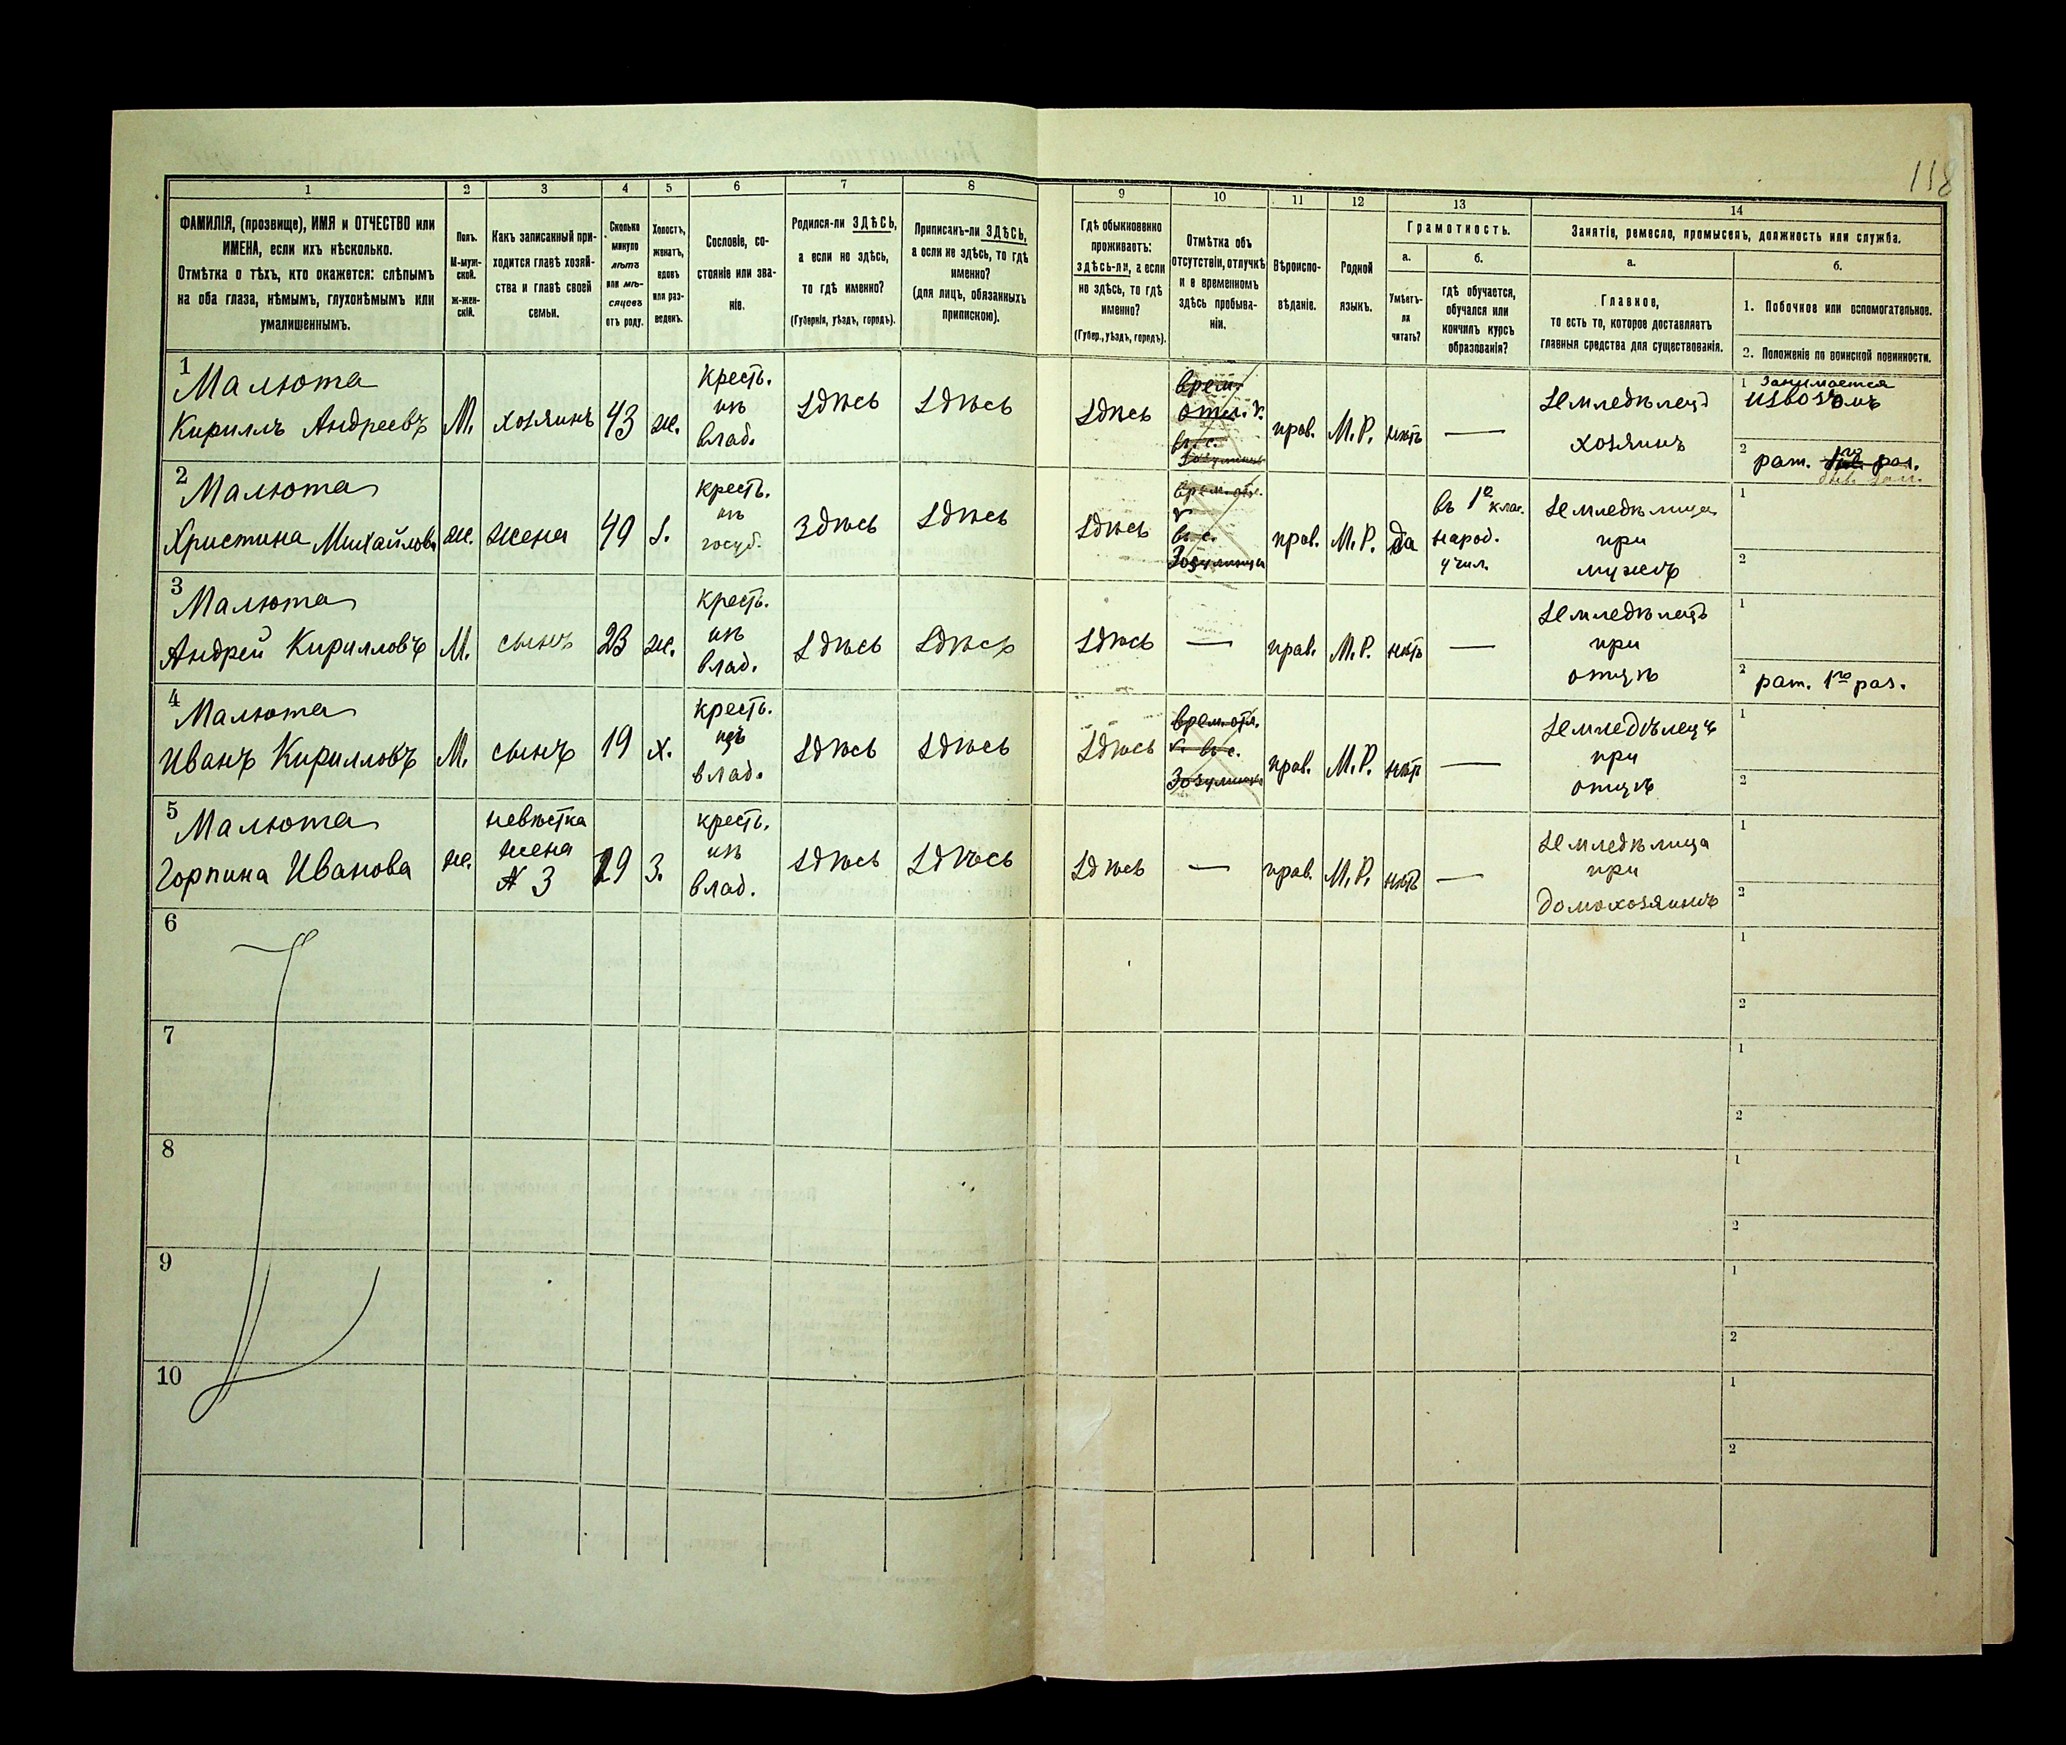 118
1
2
3
4
5
6
7
8
9
10
11
12
13
14
ФАМИЛІЯ, (прозвище), ИМЯ и ОТЧЕСТВО или
ИМЕНА, если ихъ нѣсколько.
Отмѣтка о тѣхъ, кто окажется: слѣпымъ
на оба глаза, нѣмымъ, глухонѣмымъ или
умалишеннымъ.
Полъ.
М-муж-
ской.
Ж-жен-
скій.
Какъ записанный при-
ходится главѣ хозяй-
ства и главѣ своей
семьи.
Сколько
минуло
лѣтъ
или мѣ-
сяцевъ
отъ роду.
Холостъ,
женатъ,
вдовъ
или раз-
веденъ.
Сословіе, со-
стояніе или зва-
ніе.
Родился-ли ЗДѢСЬ,
а если не здѣсь,
то гдѣ именно?
(Губернія, уѣздъ, городъ).
Приписанъ-ли ЗДѢСЬ,
а если не здѣсь, то гдѣ
именно?
(для лицъ, обязанныхъ
припискою).
Гдѣ обыкновенно
проживаетъ:
здѣсь-ли, а если
не здѣсь, то гдѣ
именно?
(Губер., уѣздъ, городъ).
Отмѣтка объ
отсутствіи, отлучкѣ
и о временномъ
здѣсь пребыва-
ніи.
Вѣроиспо-
вѣданіе.
Родной
языкъ.
Грамотность.
а.
Умѣетъ-
ли
читать?
б.
гдѣ обучается,
обучался или
кончилъ курсъ
образованія?
Занятіе, ремесло, промыселъ, должность или служба.
а.
Главное,
то есть то, которое доставляетъ
главныя средства для существованія.
б.
1. Побочное или вспомогательное.
2. Положеніе по воинской повинности.
1
Малюта
Кириллъ Андреевъ
М.
хозяинъ
43
ж.
крестъ.
изъ
влад.
здѣсь
здѣсь
здѣсь
врем.
отл.
в. с.
прав.
М.Р.
нѣтъ
—
Земледѣлецъ
хозяинъ
1 Занимается
извозомъ
2 рат. раз.
2
Малюта
Христина Михайлова
ж.
жена
49
з.
крестъ.
изъ
госуд.
здѣсь
здѣсь
здѣсь
врем. отл.
в. с.
прав.
М.Р.
да
въ 1º клас.
народ.
учил.
Земледѣлица
при
мужѣ
1
2
3
Малюта
Андрей Кирилловъ
М.
сынъ
23
ж.
крестъ.
изъ
влад.
здѣсь
здѣсь
здѣсь
—
прав.
М.Р.
нѣтъ
—
Земледѣлецъ
при
отцѣ
1
2 рат. 1го раз.
4
Малюта
Иванъ Кирилловъ
М.
сынъ
19
х.
крестъ.
изъ
влад.
здѣсь
здѣсь
здѣсь
врем. отл.
в с.
прав.
М.Р.
нѣтъ
—
Земледѣлецъ
при
отцѣ
1
2
5
Малюта
Горпина Иванова
ж.
невѣстка
жена
№ 3
з.
крестъ.
изъ
влад.
здѣсь
здѣсь
здѣсь
—
прав.
М.Р.
нѣтъ
—
Земледѣлица
при
домохозяинѣ
1
2
6
1
2
7
1
2
8
1
2
9
1
2
10
1
2